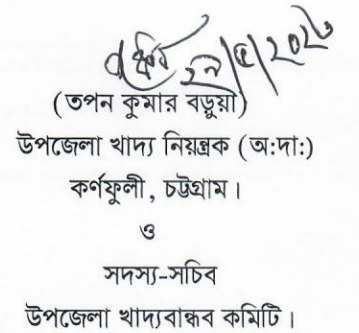 (তপন কুমার বড়ুয়া)
উপজেলা খাদ্য নিয়ন্ত্রক (অ:দা:)
কর্ণফুলী, চট্টগ্রাম।
ও
সদস্য-সচিব
উপজেলা খাদ্যবান্ধব কমিটি।